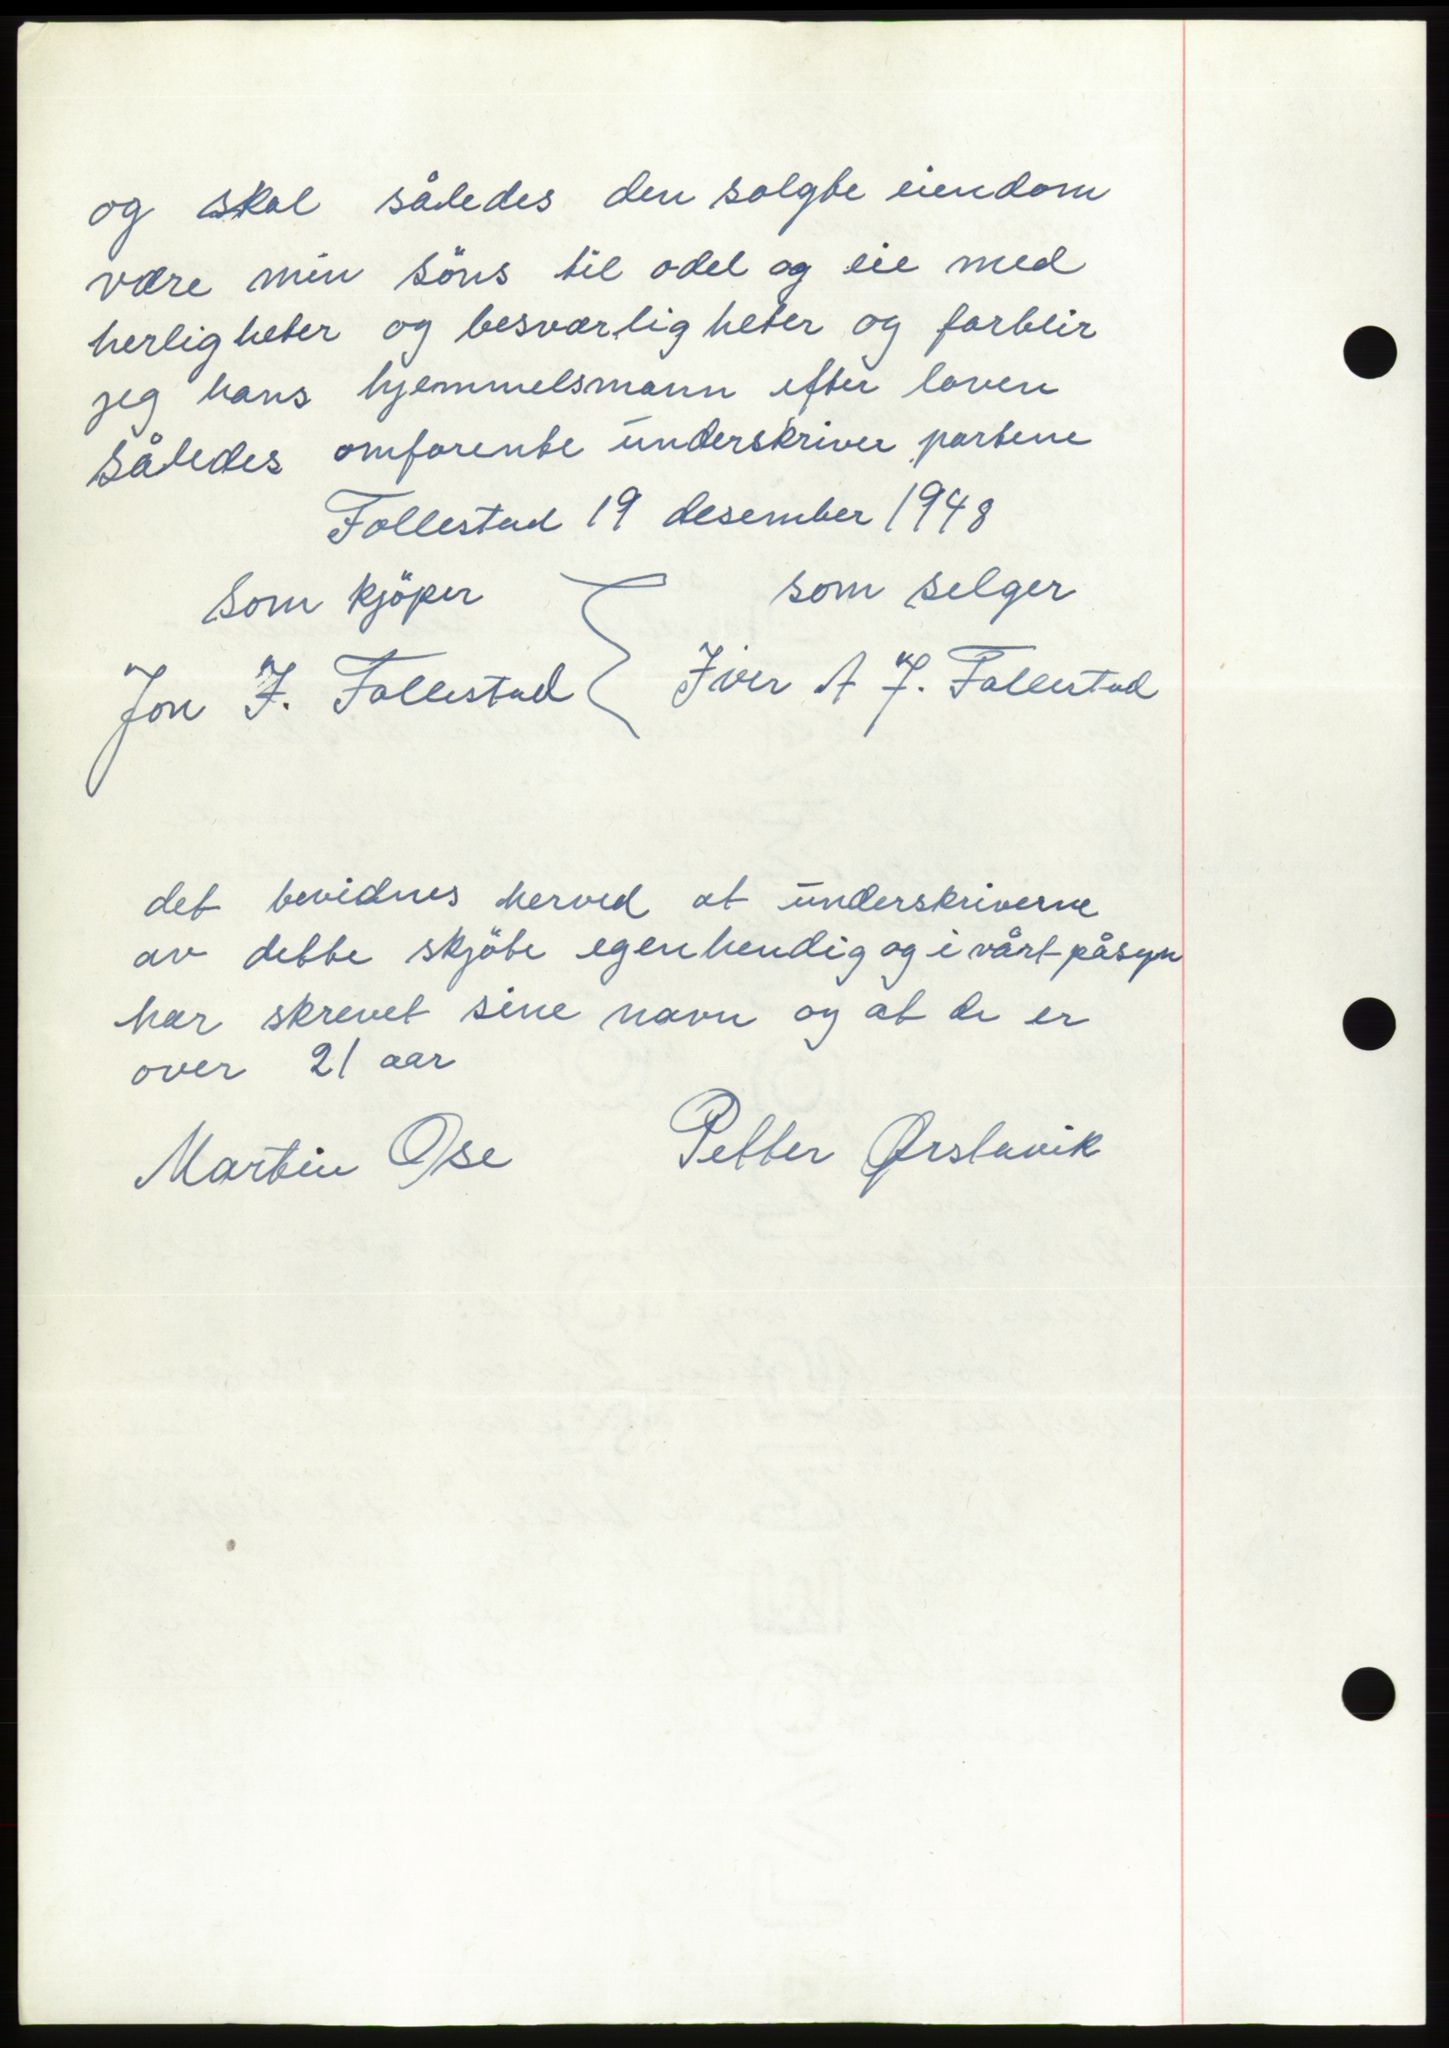 og skal således den solgte eiendom
være min söns til odel og eie med
herligheter og besværligheter og forblir
jeg hans hjemmelsmann efter loven
således omforente underskriver partene
Follestad 19 desember 1948
som kjöper som selger
Jon I. Follestad Iver A J. Follestad
det bevidnes herved at underskriverne
av dette skjöte egenhendig og i vårt påsyn
har skrevet sine navn og at de er
over 21 aar
Martin Ose Petter Ørstavik